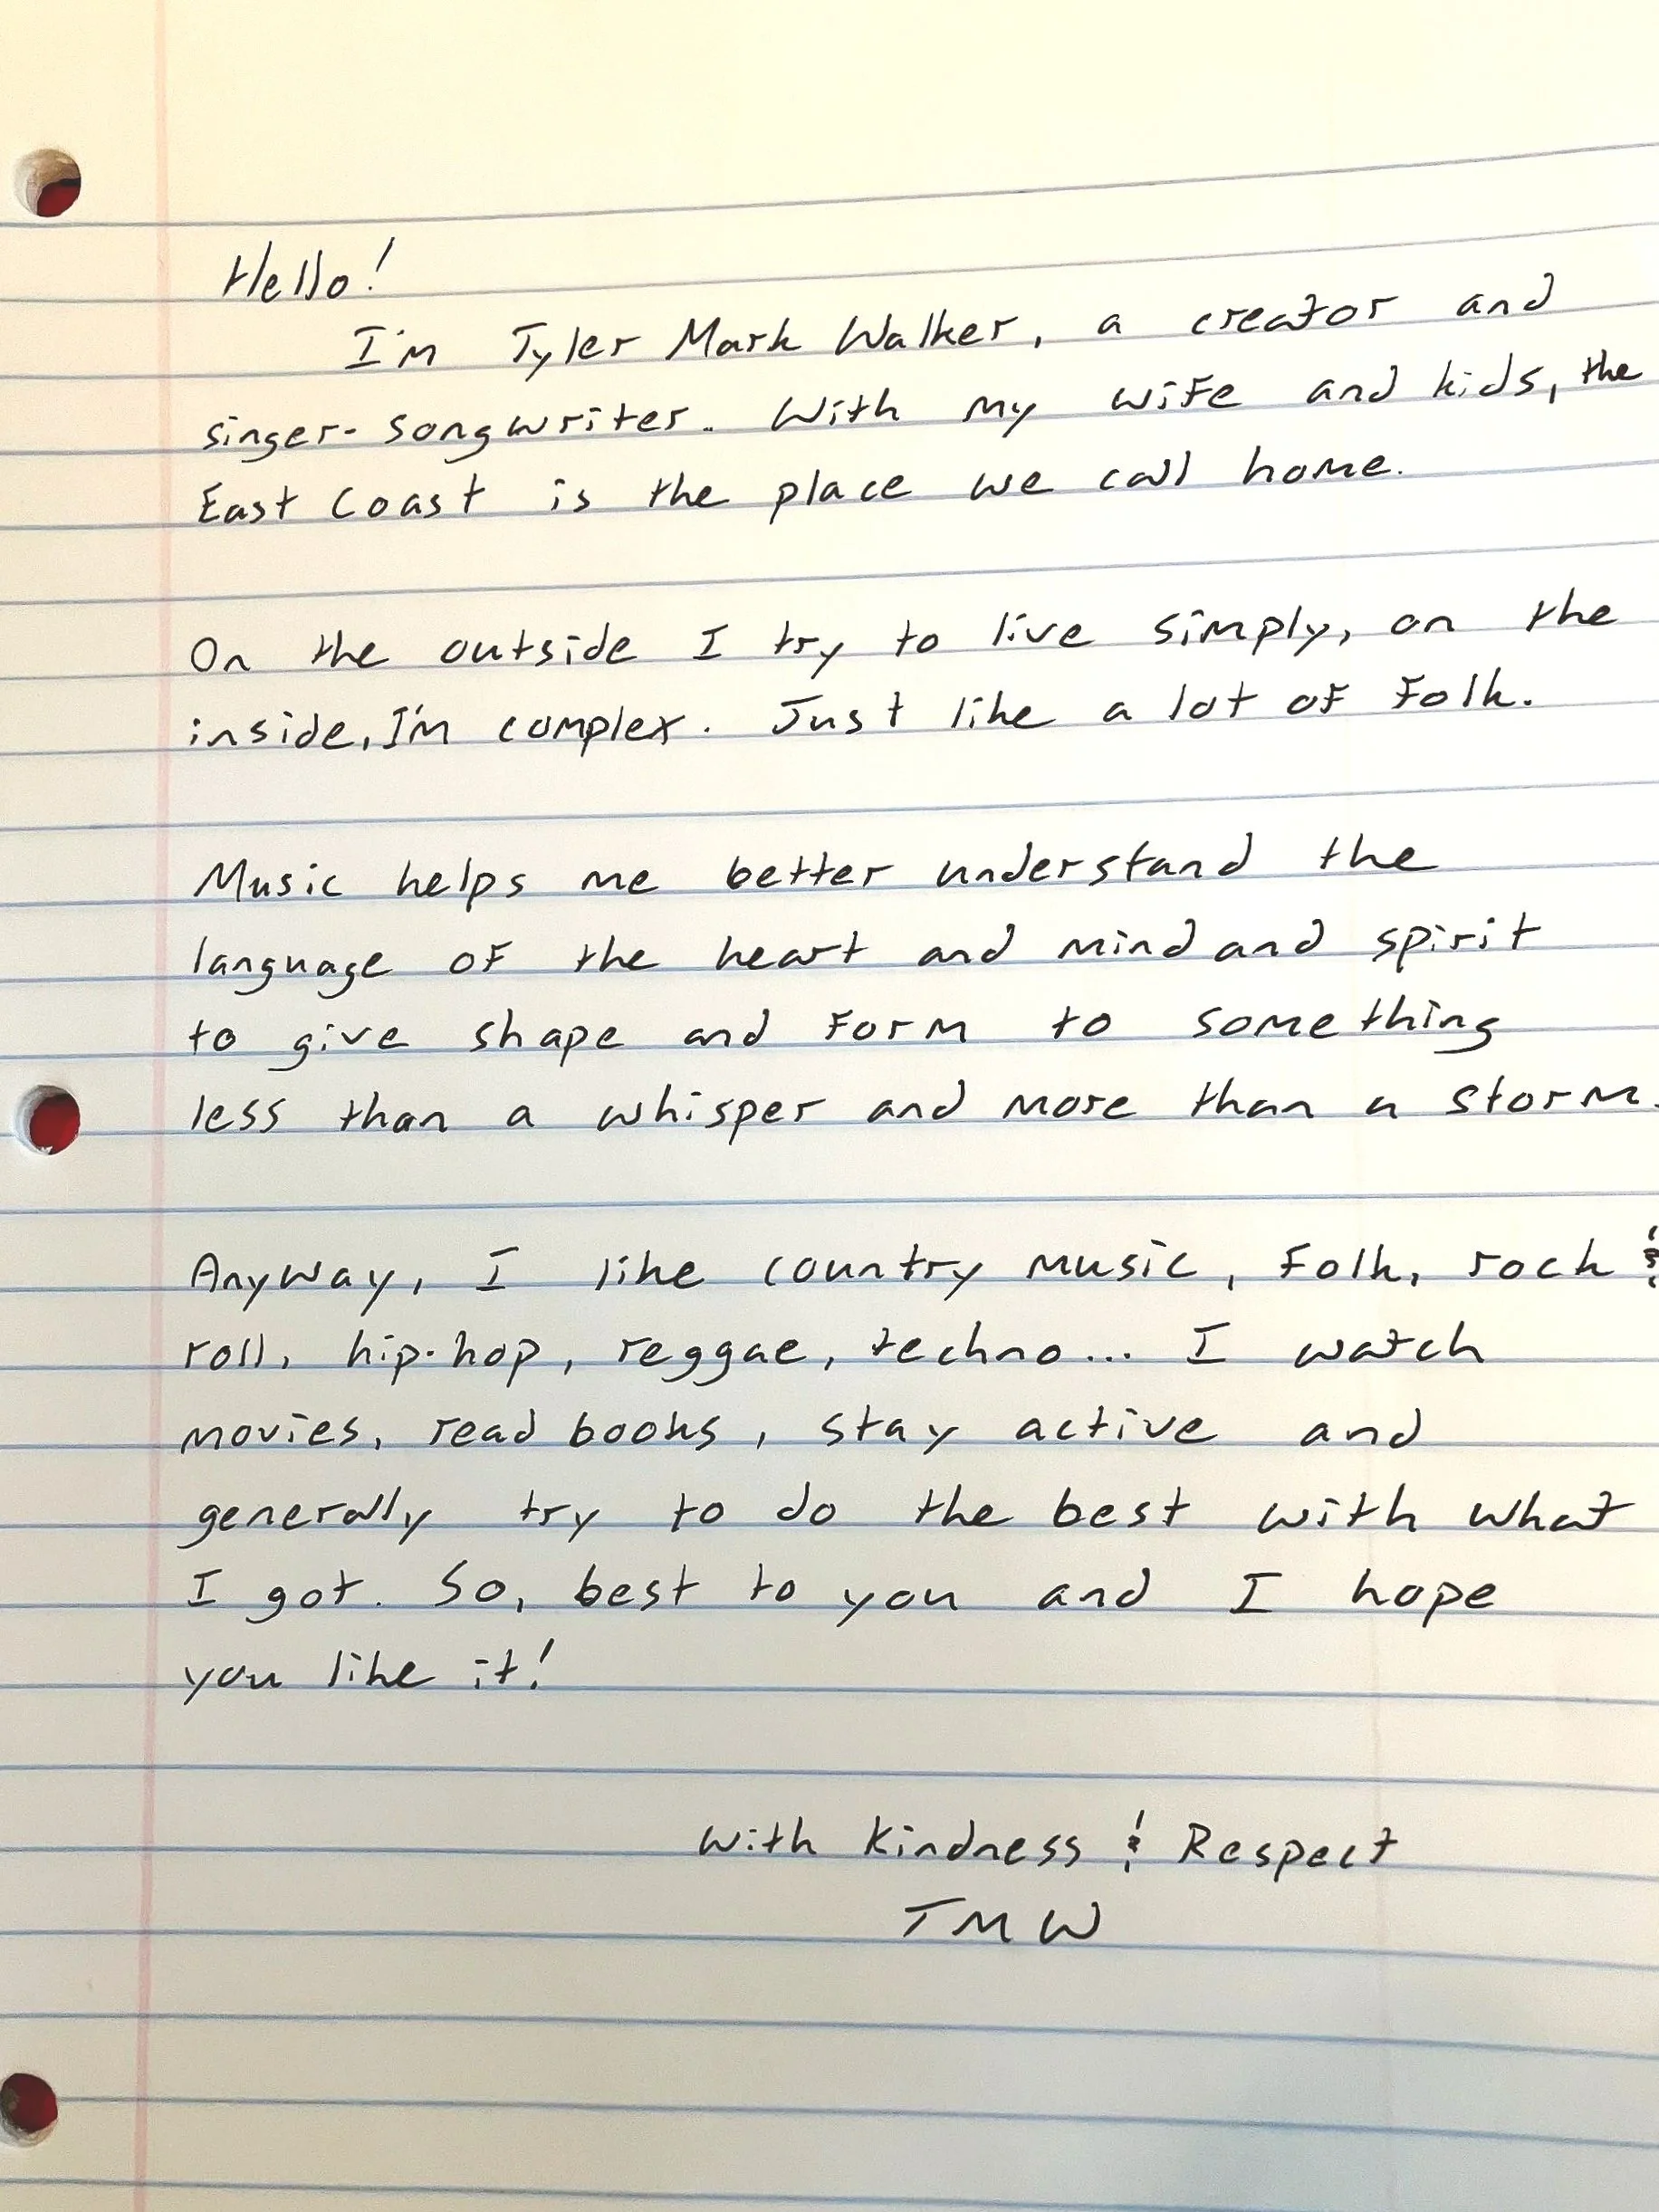 Hello!
I'm Tyler Mark Walker, a creator and
singer-songwriter. With my wife and kids, the
East Coast is the place we call home.
On the outside I try to live simply, on the
inside, I'm complex. Just like a lot of folk.
Music helps me better understand the
language of the heart and mind and spirit
to give shape and form to something
less than a whisper and more than a storm.
Anyway, I like country music, folk, rock &
roll, hip-hop, reggae, techno... I watch
movies, read books, stay active and
generally try to do the best with what
I got. So, best to you and I hope
you like it!
With Kindness & Respect
TMW